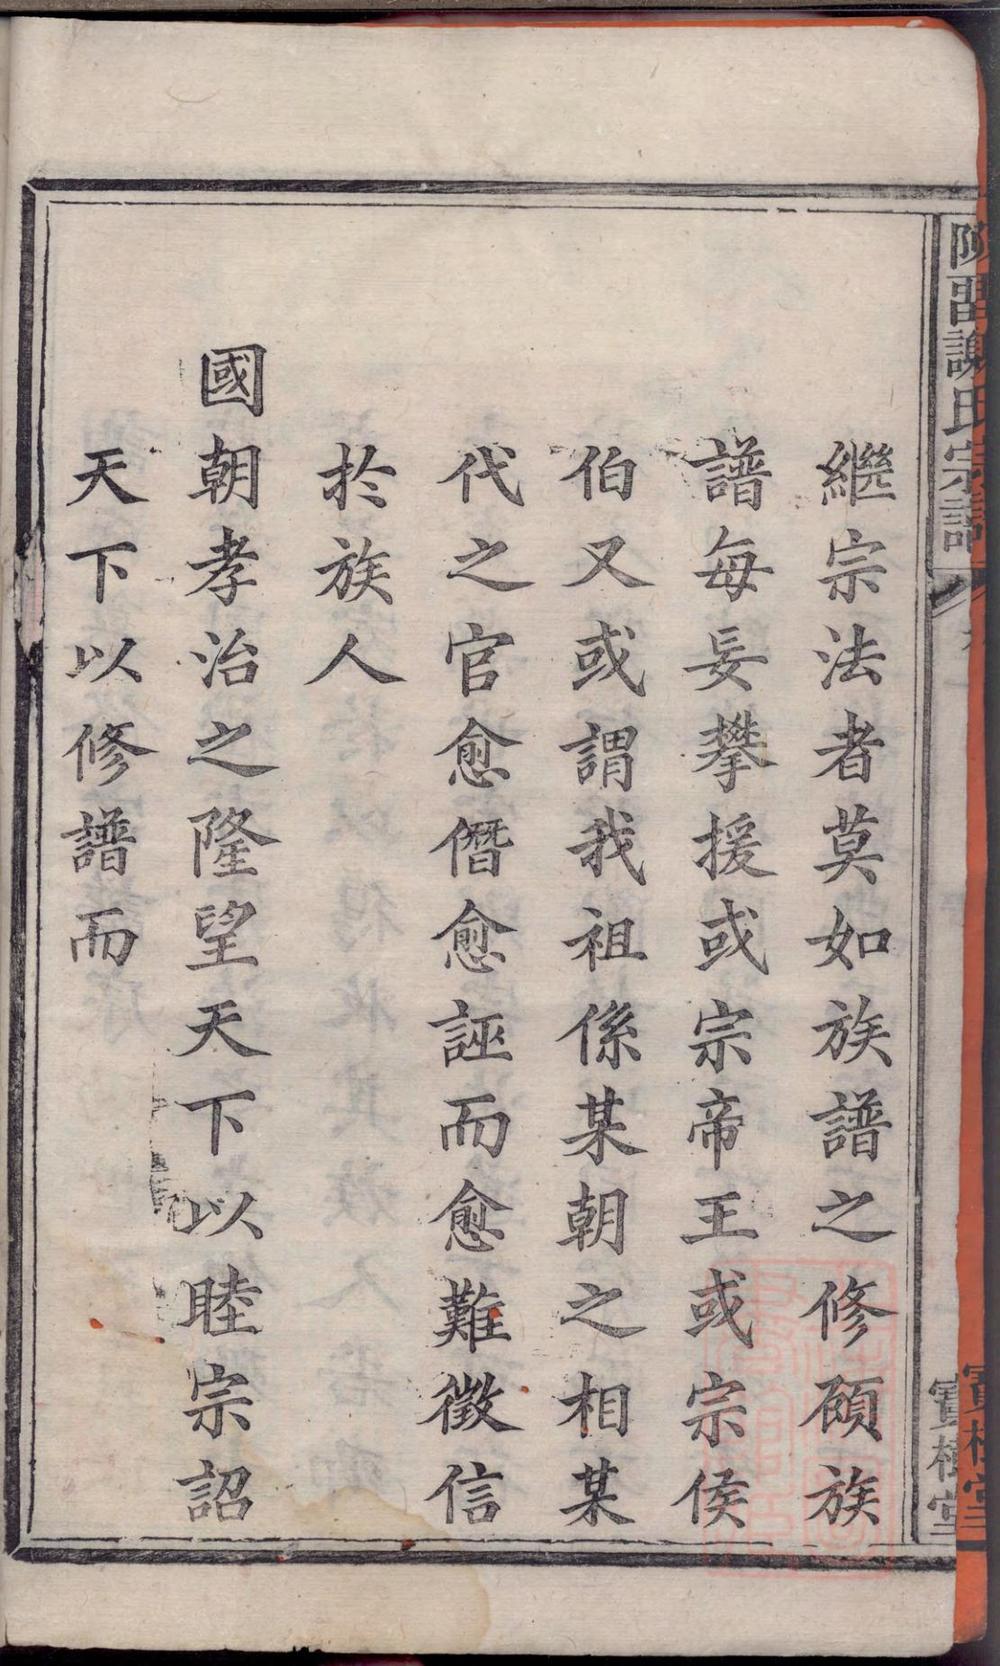 繼宗法者莫如族譜之修顧族
譜每妄攀援或宗帝王或宗侯
伯又或謂我祖係某朝之相某
代之官愈僭愈誣而愈難徵信
於族人
國朝孝治之隆望天下以睦宗詔
天下以修譜而
留謝氏宗譜
寶樹堂
寶樹堂